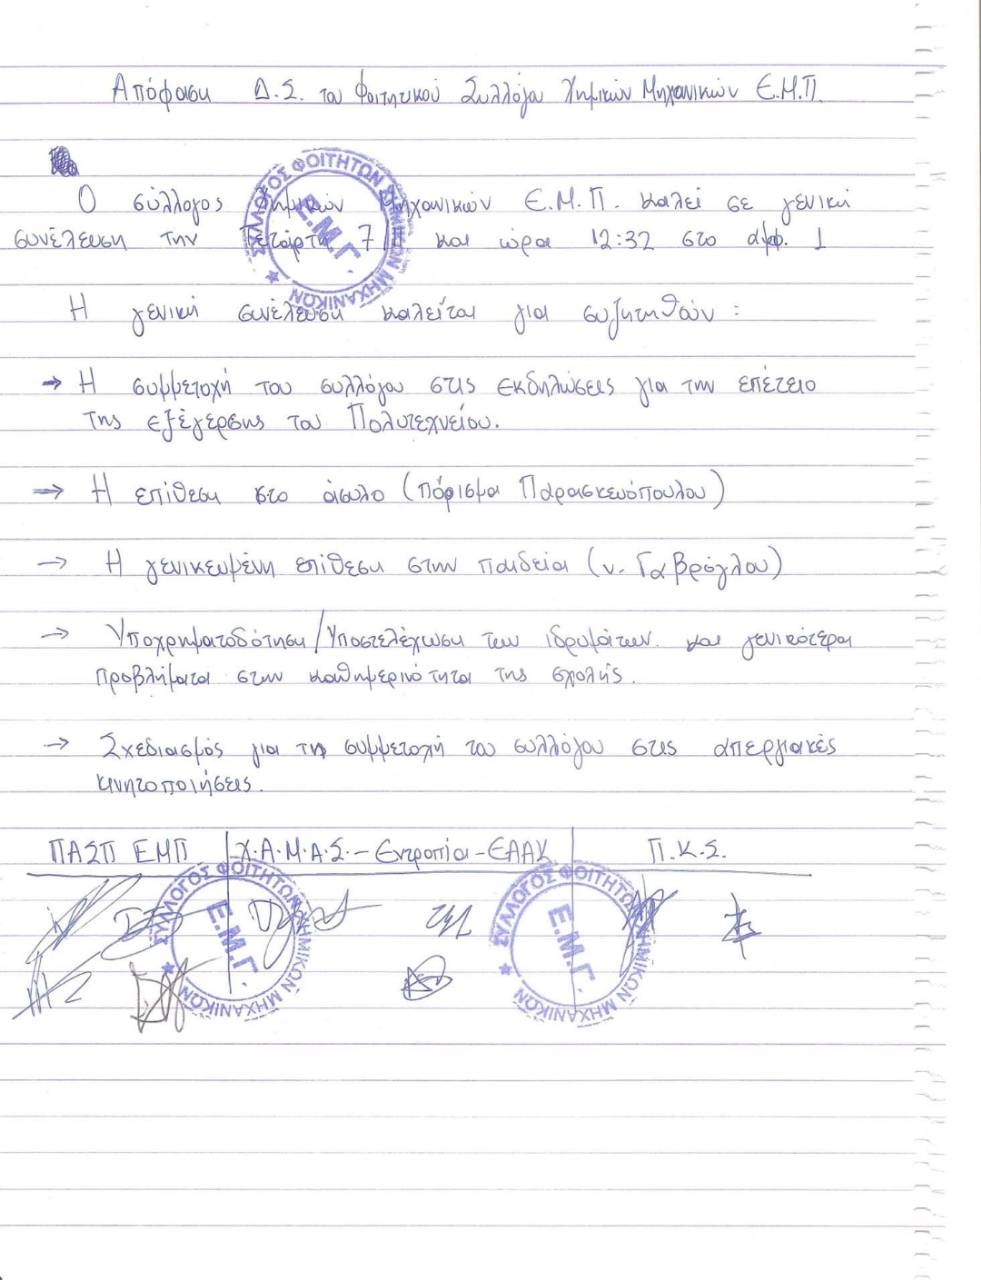 Απόφαση Δ.Σ. του Φοιτητικού Συλλόγου Χημικών Μηχανικών Ε.Μ.Π.
Ο σύλλογος Χημικών Μηχανικών Ε.Μ.Π. καλεί σε γενική
συνέλευση την Τετάρτη 7 και ώρα 12:32 στο αμφ. 1
Η γενική συνέλευση καλείται για συζητηθούν :
→ Η συμμετοχή του συλλόγου στις εκδηλώσεις για την επέτειο
της εξέγερσης του Πολυτεχνείου.
→ Η επίθεση στο άσυλο (πόρισμα Παρασκευόπουλου)
→ Η γενικευμένη επίθεση στην παιδεία (ν. Γαβρόγλου)
→ Υποχρηματοδότηση/Υποστελέχωση των ιδρυμάτων. και γενικότερα
προβλήματα στην καθημερινότητα της σχολής.
→ Σχεδιασμός για τη συμμετοχή του συλλόγου στις απεργιακές
κινητοποιήσεις.
ΠΑΣΠ ΕΜΠ Χ.Α.Μ.Α.Σ.-Εντροπία-ΕΑΑΚ Π.Κ.Σ.
ΣΥΛΛΟΓΟΣ ΦΟΙΤΗΤΩΝ ΧΗΜΙΚΩΝ ΜΗΧΑΝΙΚΩΝ
Ε.Μ.Γ.
ΣΥΛΛΟΓΟΣ ΦΟΙΤΗΤΩΝ ΧΗΜΙΚΩΝ ΜΗΧΑΝΙΚΩΝ
Ε.Μ.Γ.
ΣΥΛΛΟΓΟΣ ΦΟΙΤΗΤΩΝ ΧΗΜΙΚΩΝ ΜΗΧΑΝΙΚΩΝ
Ε.Μ.Γ.